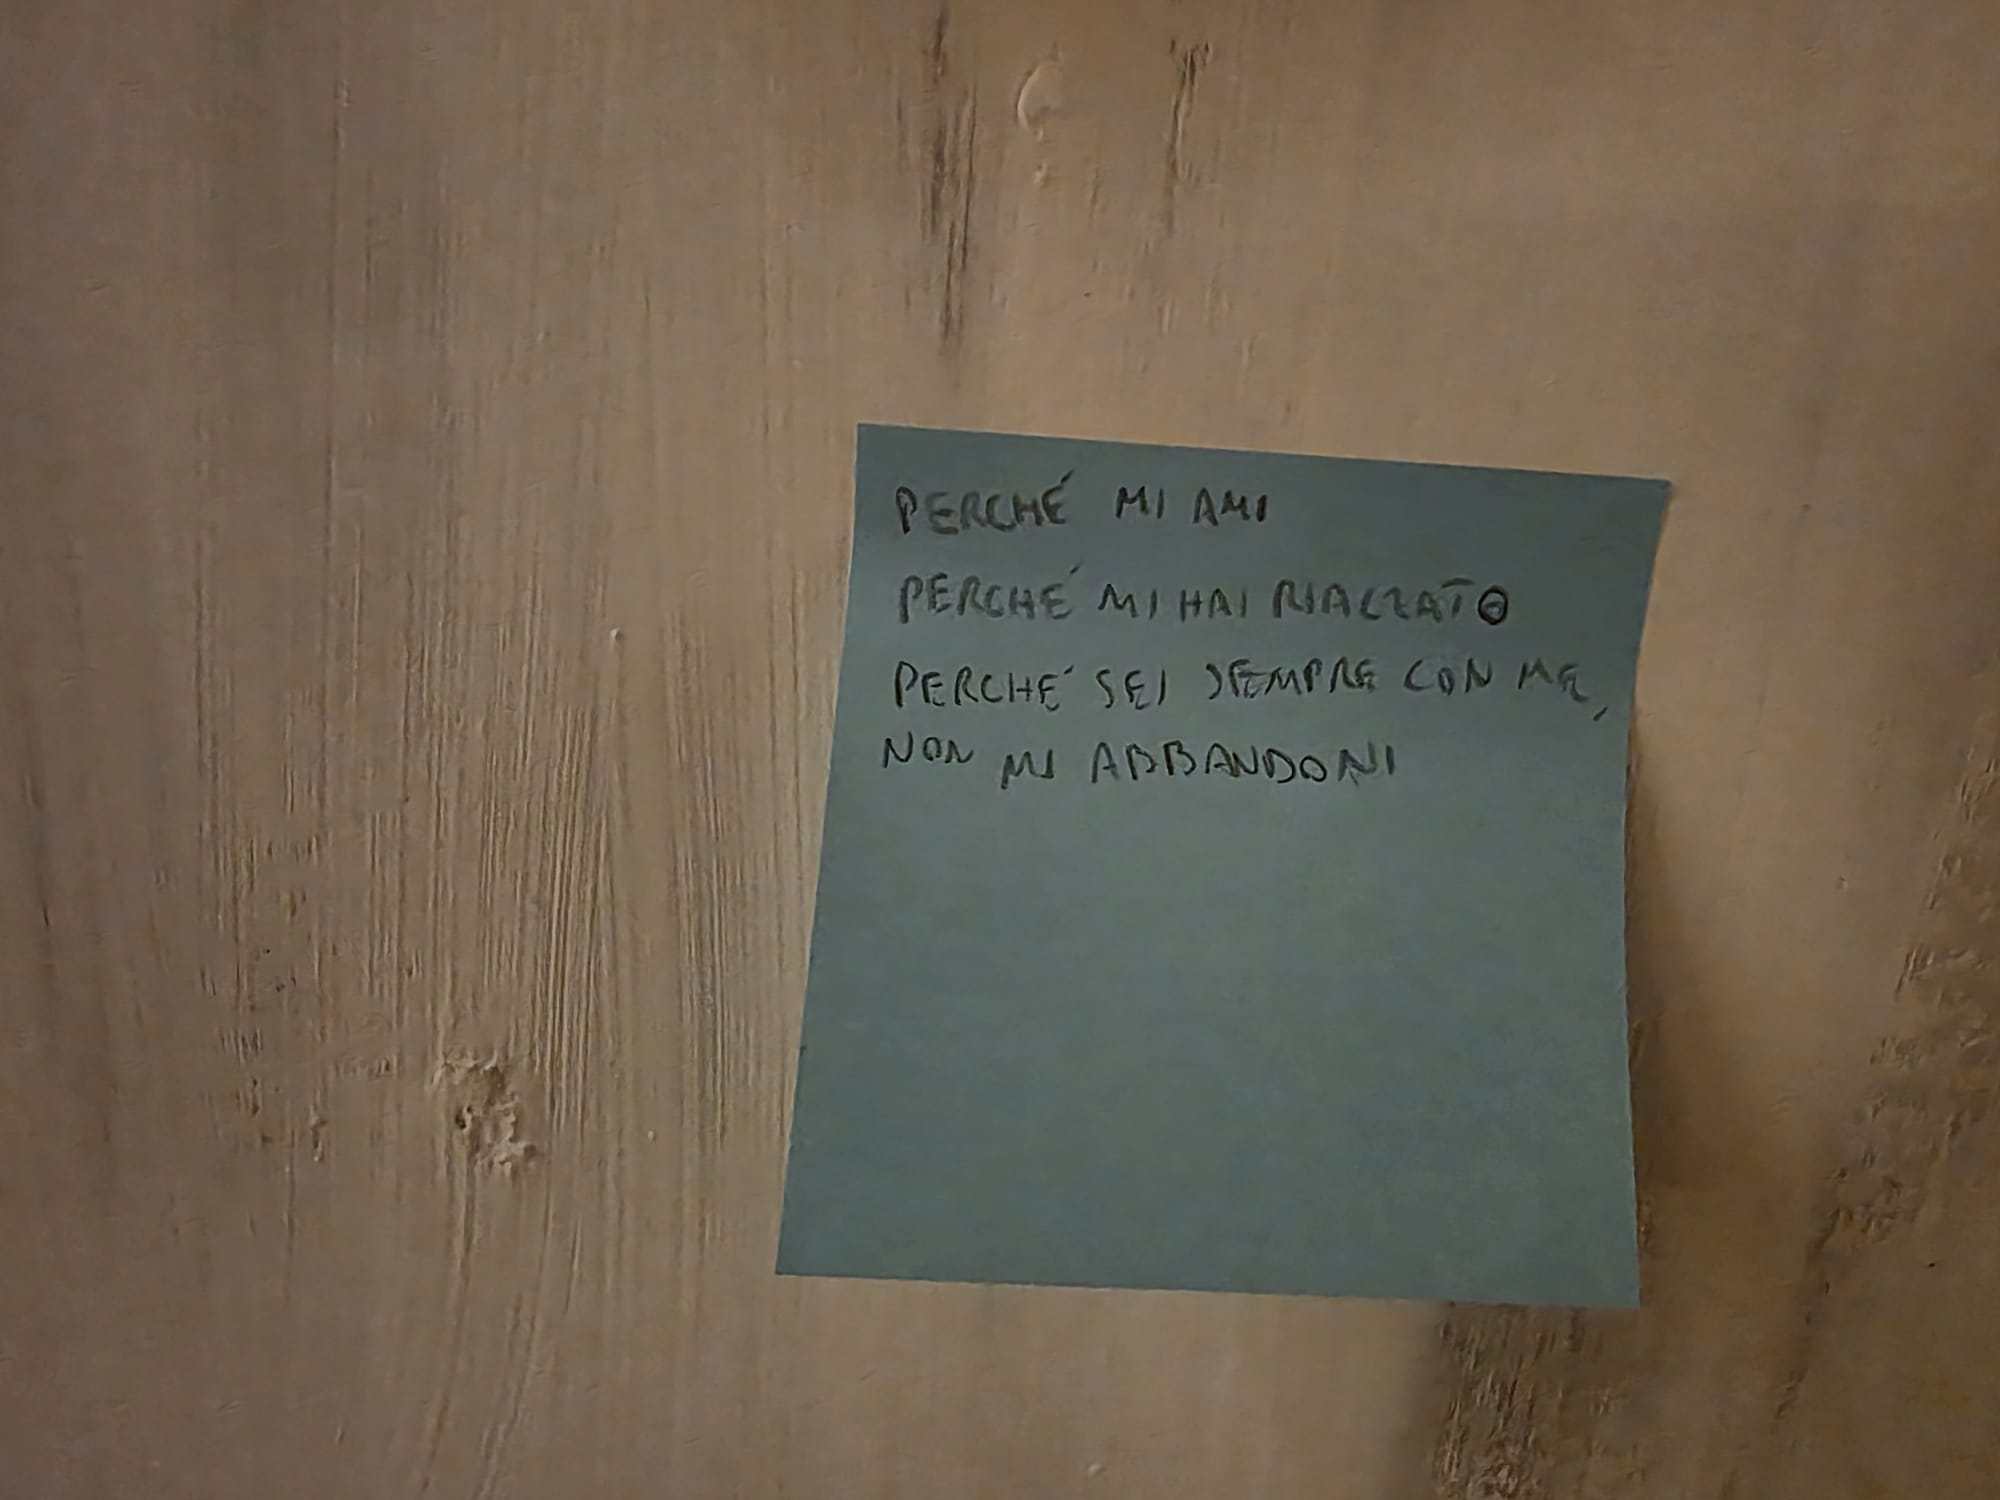 PERCHÉ MI AMI
PERCHÉ MI HAI RIALZATO
PERCHÉ SEI SEMPRE CON ME,
NON MI ABBANDONI